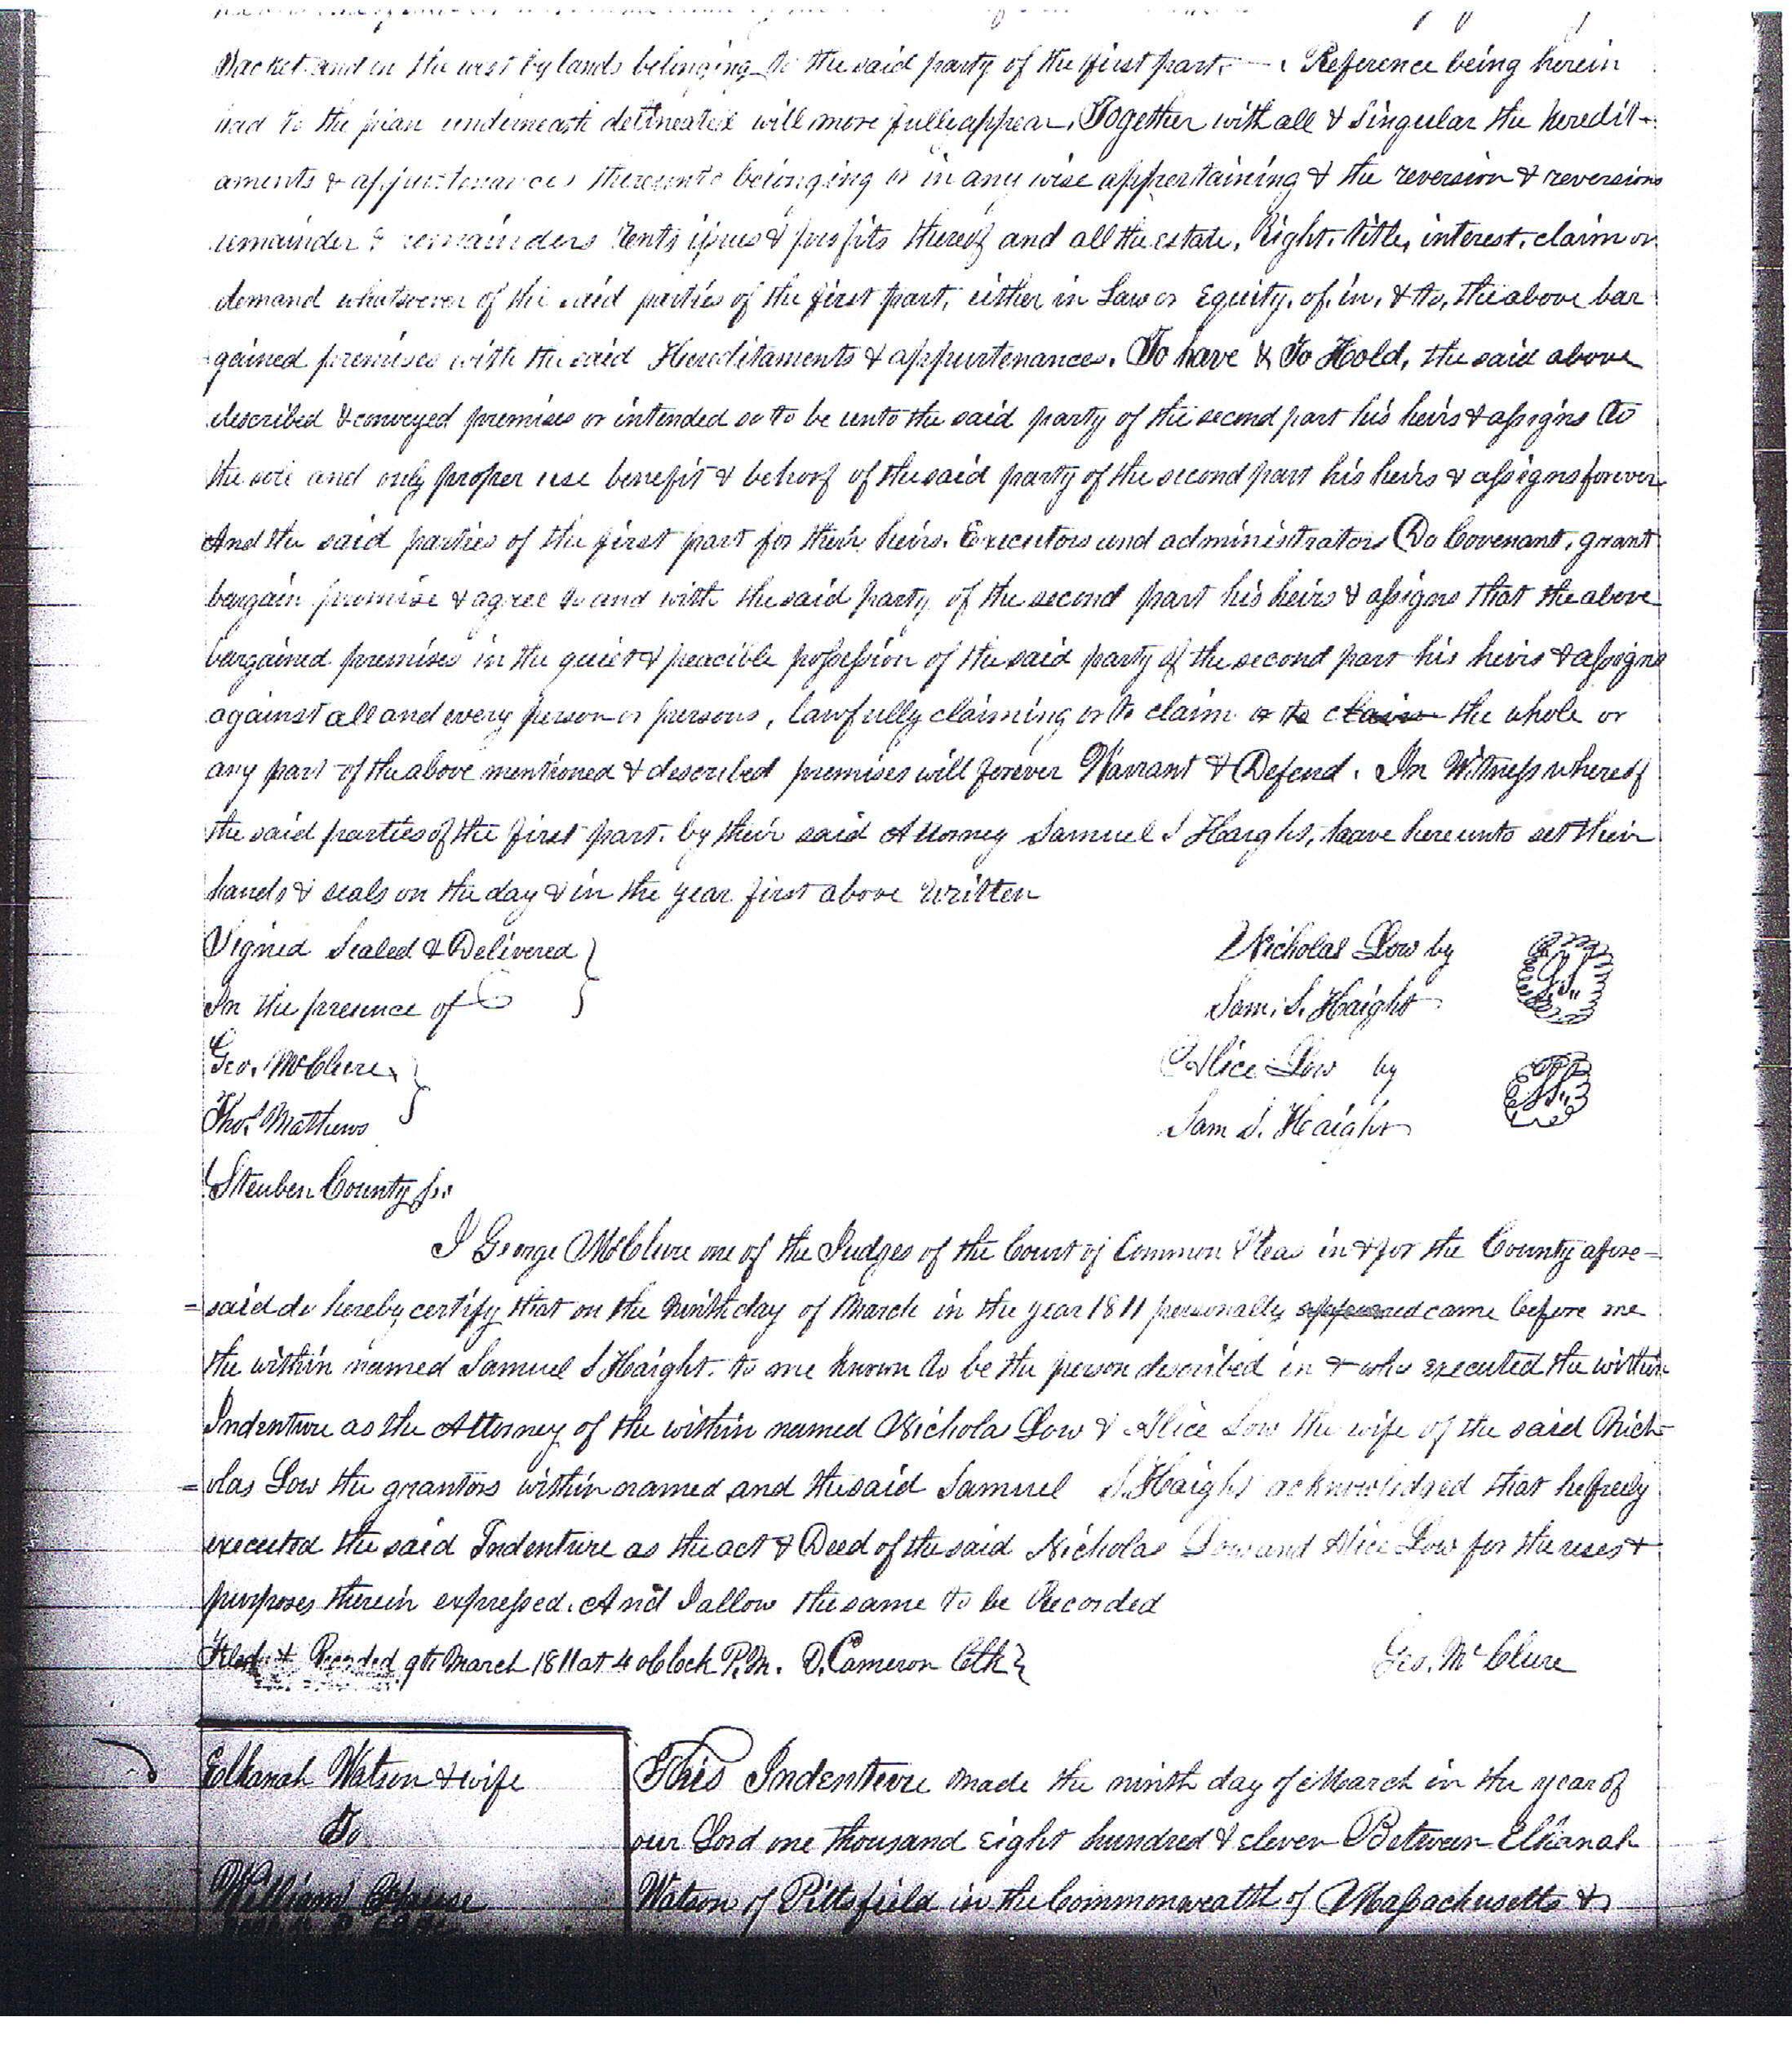 Sacket and on the west by lands belonging to the said party of the first part. — Reference being herein
had to the plan underneath delineated will more fully appear. Together with all & Singular the heredit-
aments & appurtenances thereunto belonging or in any wise appertaining & the reversion & reversions
remainder & remainders rents issues & profits thereof and all the estate, Right, title, interest, claim or
demand whatsoever of the said parties of the first part, either in Law or Equity, of, in, & to, the above bar
gained premises with the said Hereditaments & appurtenances. To have & To Hold, the said above
described & conveyed premises or intended so to be unto the said party of the second part his heirs & assigns to
the sole and only proper use benefit & behoof of the said party of the second part his heirs & assigns forever
And the said parties of the first part for their heirs. Executors and administrators Do Covenant, grant
bargain promise & agree to and with the said party of the second part his heirs & assigns that the above
bargained premises in the quiet & peacible possession of the said party of the second part his heirs & assigns
against all and every person or persons, lawfully claiming or to claim or to claim the whole or
any part of the above mentioned & described premises will forever Warrant & Defend. In Witness whereof
the said parties of the first part. by their said Attorney Samuel S Haight, have hereunto set their
hands & seals on the day & in the year first above written
Signed Sealed & Delivered
In the presence of
Nicholas Low by
Sam. S. Haight
L.S.
Geo. McClure
Thos. Mathews
Alice Low by
Sam S. Haight
L.S.
Steuben County ss.
I George McClure one of the Judges of the Court of Common Pleas in & for the County afore-
=said do hereby certify that on the Ninth day of March in the year 1811 personally appeared came before me
the within named Samuel S Haight. to me known to be the person described in & who executed the within
Indenture as the Attorney of the within named Nichola Low & Alice Low the wife of the said Nich-
=olas Low the grantors within named and the said Samuel S. Haight acknowledged that he freely
executed the said Indenture as the act & Deed of the said Nicholas Low and Alice Low for the uses &
purposes therein expressed. And I allow the same to be Recorded
Filed & Recorded 9th March 1811 at 4 oClock P.M. D. Cameron Clk
Geo. McClure
Elkanah Watson & wife
To
William
This Indenture made the ninth day of March in the year of
our Lord one thousand eight hundred & eleven Between Elkanah
Watson of Pittsfield in the Commonwealth of Massachusetts &